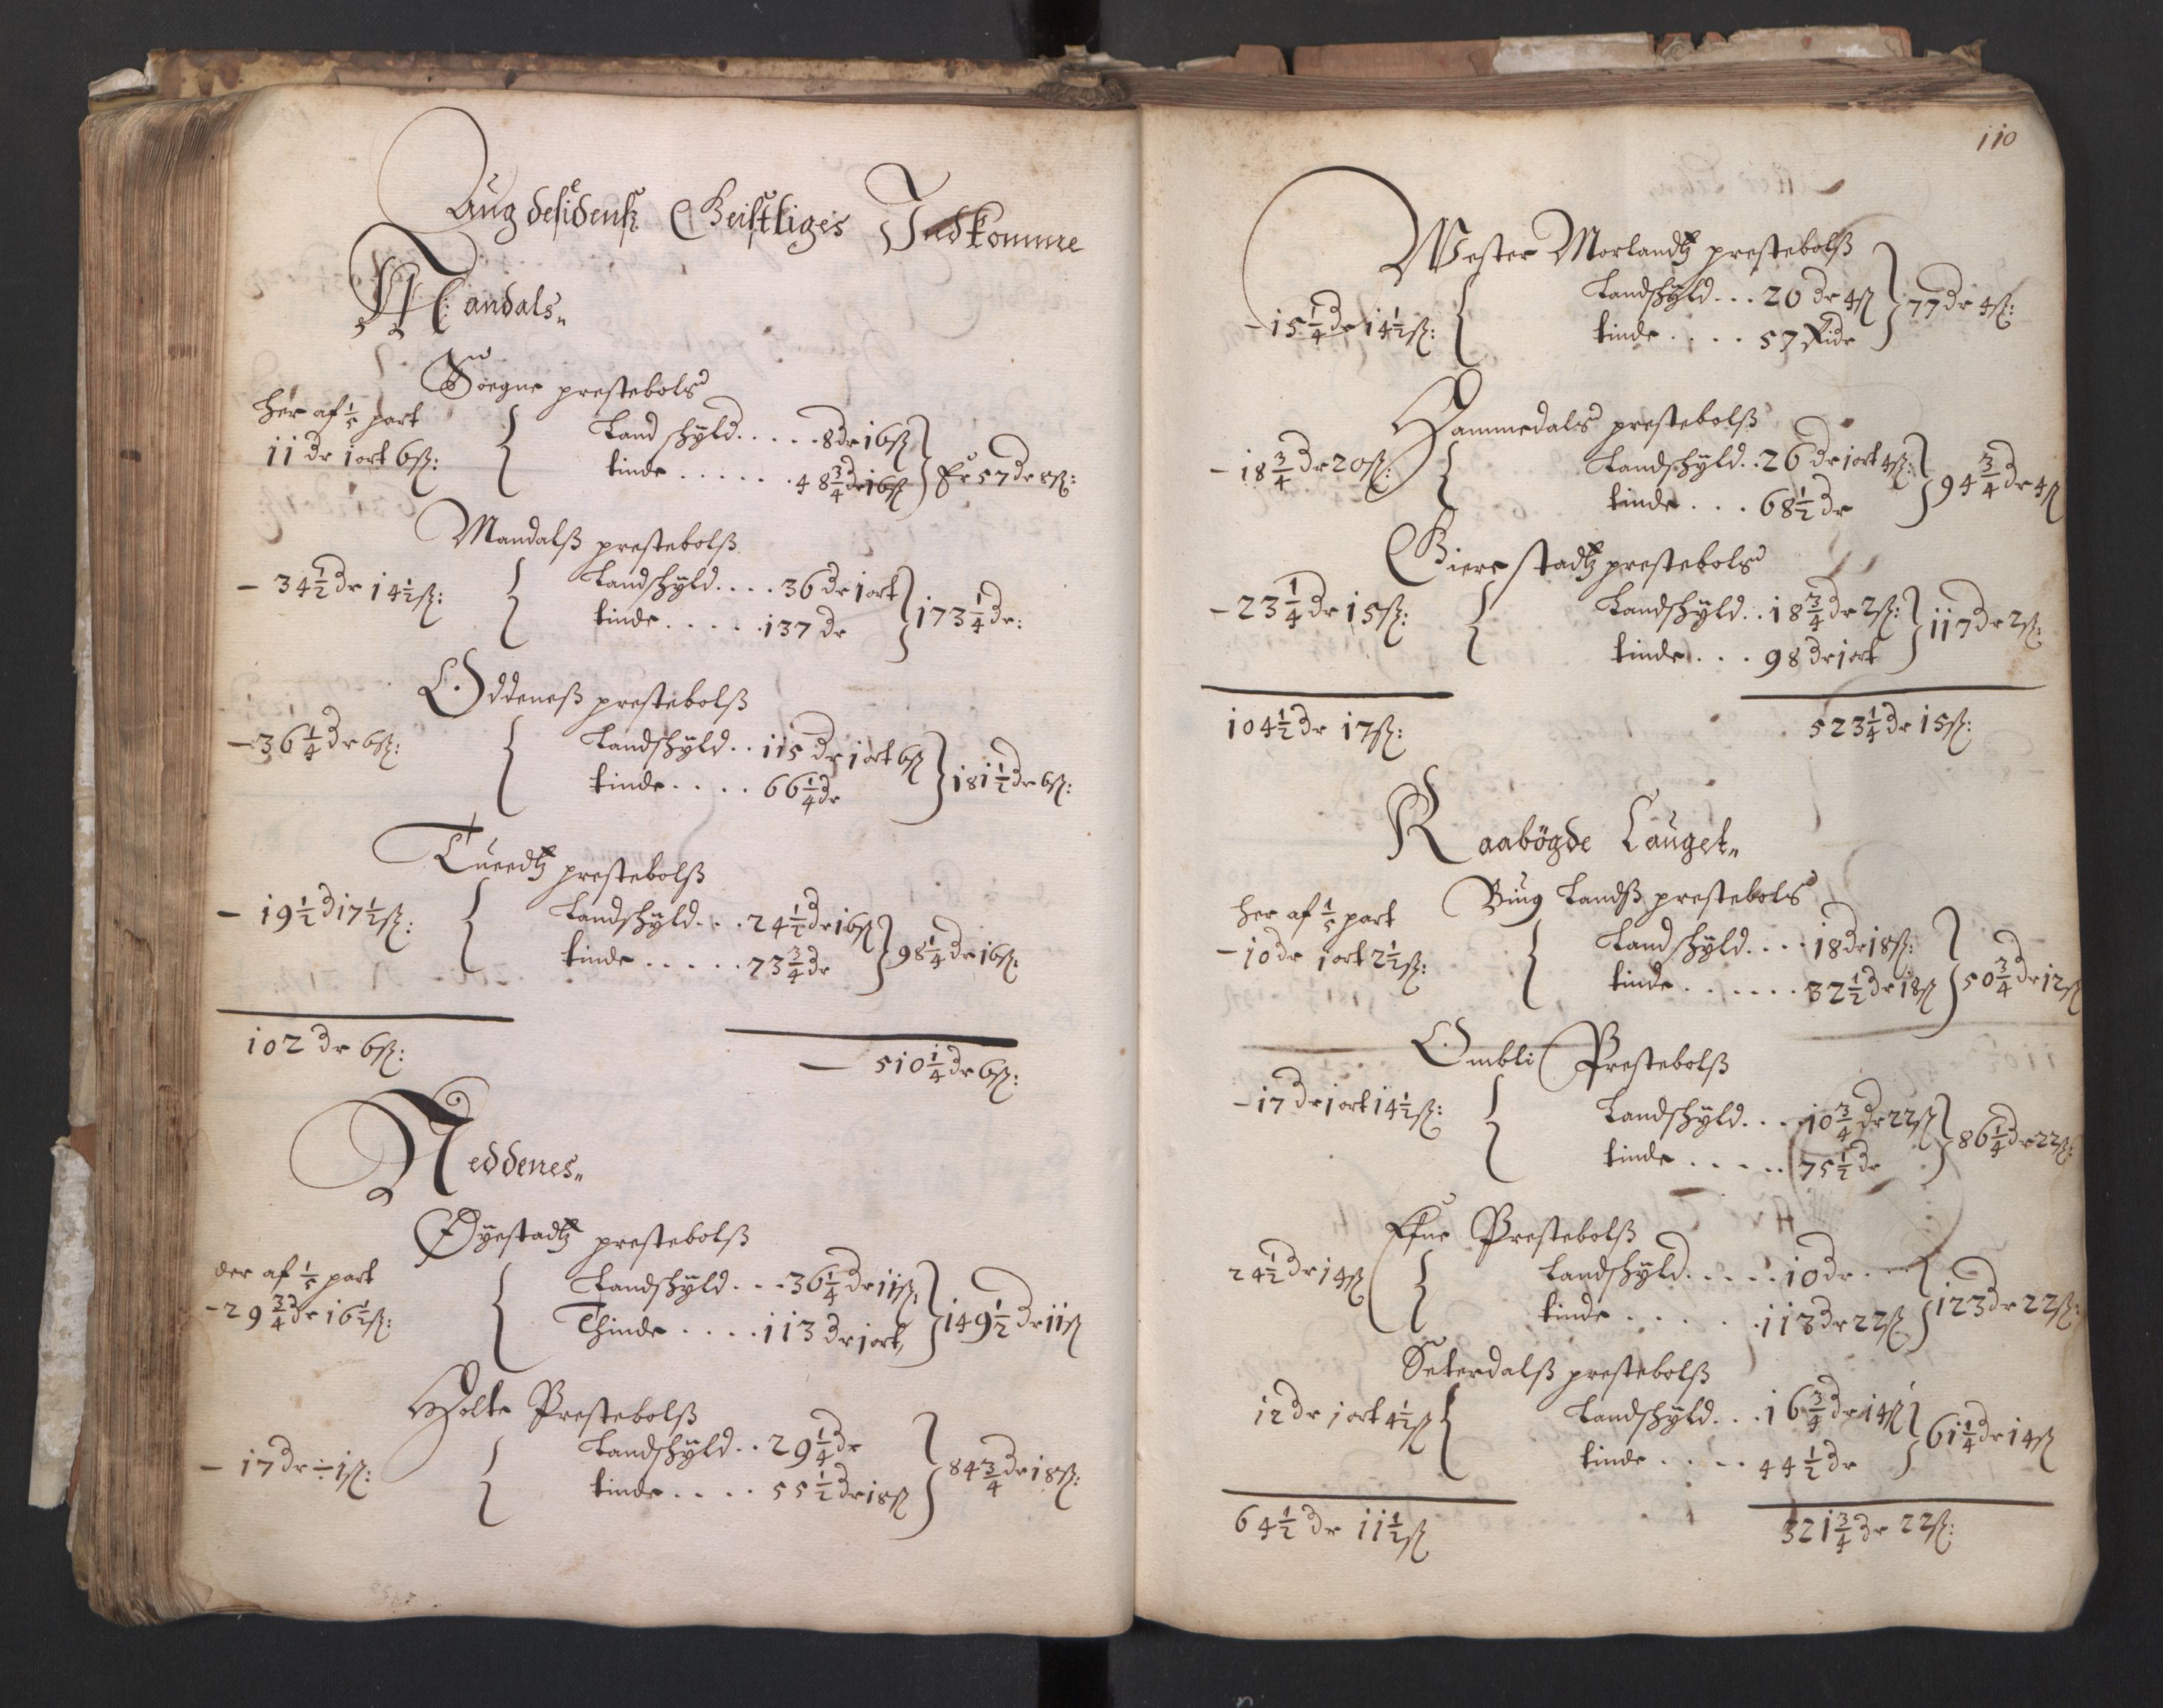 Aug desidenß Geistliges Indkomme
Mandals„
Søegne prestebols
her af 1/5 part
11 dr 1 ort 6 ß:
Landskÿld . . . . . 8 dr 16 ß
tinde . . . . . . 48 3/4 dr 16 ß
Er 57 dr 8 ß:
Mandalß prestebolß
- 34 1/2 dr 14 1/2 ß:
Landskÿld . . . . 36 dr 1 ort
tinde . . . . . 137 dr
173 1/4 dr:
Oddeneß prestebolß
- 36 1/4 dr 6 ß:
Landskÿld . . 115 dr 1 ort 6 ß
tinde . . . . 66 1/4 dr
181 1/2 dr 6 ß:
Tueedtz prestebolß
- 19 1/2 d 17 1/2 ß:
Landskÿld . . . 24 1/2 dr 16 ß
tinde . . . . . 73 3/4 dr
98 1/4 dr 16 ß:
102 dr 6 ß:
— 510 1/4 dr 6 ß:
Neddenes„
Øÿestadtz prestebolß
der af 1/5 part
- 29 3/4 dr 16 1/2 ß:
Landskÿld . . . 36 1/4 dr 11 ß
Thinde . . . . 113 dr 1 ort
149 1/2 dr 11 ß
Holte Prestebolß
- 17 dr ÷ 1 ß:
Landskÿld . . 29 1/4 dr
tinde . . . . 55 1/2 dr 18 ß
84 3/4 dr 18 ß:
110
Wester Morlandtz prestebolß
- 15 1/4 dr 14 1/2 ß:
Landskÿld . . . 20 dr 4 ß
tinde . . . . 57 Ridr
77 dr 4 ß:
Hammedals prestebolß
- 18 3/4 dr 20 ß:
Landskÿld . . 26 dr 1 ort 4 ß:
tinde . . . 68 1/2 dr
94 3/4 dr 4 ß
Gierestadtz prestebols
- 23 1/4 dr 15 ß:
Landskÿld . . 18 3/4 dr 2 ß:
tinde . . . 98 dr 1 ort
117 dr 2 ß:
104 1/2 dr 17 ß:
523 1/4 dr 15 ß:
Raabögde Lauget„
Biug Landß prestebols
her af 1/5 part
- 10 dr 1 ort 2 1/2 ß:
Landskÿld . . . . 18 dr 18 ß:
tinde . . . . . . 32 1/2 dr 18 ß
50 3/4 dr 12 ß
Ombli Prestebolß
- 17 dr 1 ort 14 1/2 ß:
Landskÿld . . . . 10 3/4 dr 22 ß
tinde . . . . . 75 1/2 dr
86 1/4 dr 22 ß:
Efne Prestebolß
24 1/2 dr 14 ß
Landskÿld . . . . . 10 dr . .
tinde . . . . . . 113 dr 22 ß
123 dr 22 ß:
Seterdalß prestebolß
12 dr 1 ort 4 1/2 ß
Landskÿld . . . 16 3/4 dr 14 ß
tinde . . . . 44 1/2 dr
61 1/4 dr 14 ß
64 1/2 dr 11 1/2 ß
321 3/4 dr 22 ß: